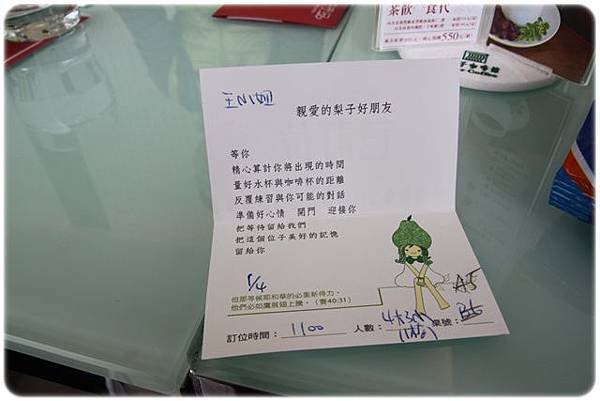 茶飲 食代
550元
王小姐
親愛的梨子好朋友
等你
精心算計你將出現的時間
量好水杯與咖啡杯的距離
反覆練習與你可能的對話
準備好心情 開門 迎接你
把等待留給我們
把這個位子美好的記憶
留給你
1/4
但那等候耶和華的必重新得力，
他們必如鷹展翅上騰。（賽40:31）
A5
訂位時間：1100 人數：4大3小 桌號：B5